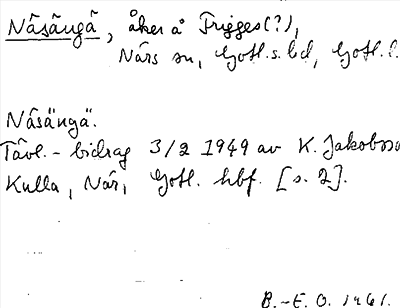 Näsängä, åker å Trigges(?),
När sn, Gotl. s. hd, Gotl. l.
Näsängä.
Tävl.-bidrag 3/2 1949 av K. Jakobsso
Kulla, När, Gotl. hbf. [s. 2].
B.-E. O. 1961.